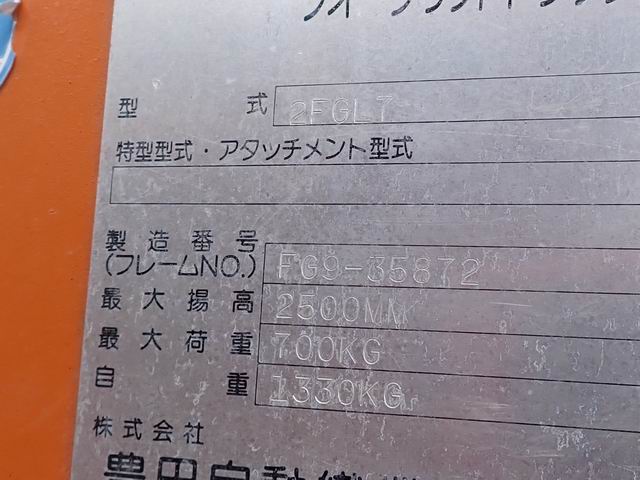 フォークリフトトラック
型 式 2FGL7
特型型式・アタッチメント型式
製造番号 FG9-35872
(フレームNO.)
最大揚高 2500MM
最大荷重 700KG
自 重 1330KG
株式会社
豊田自動織機